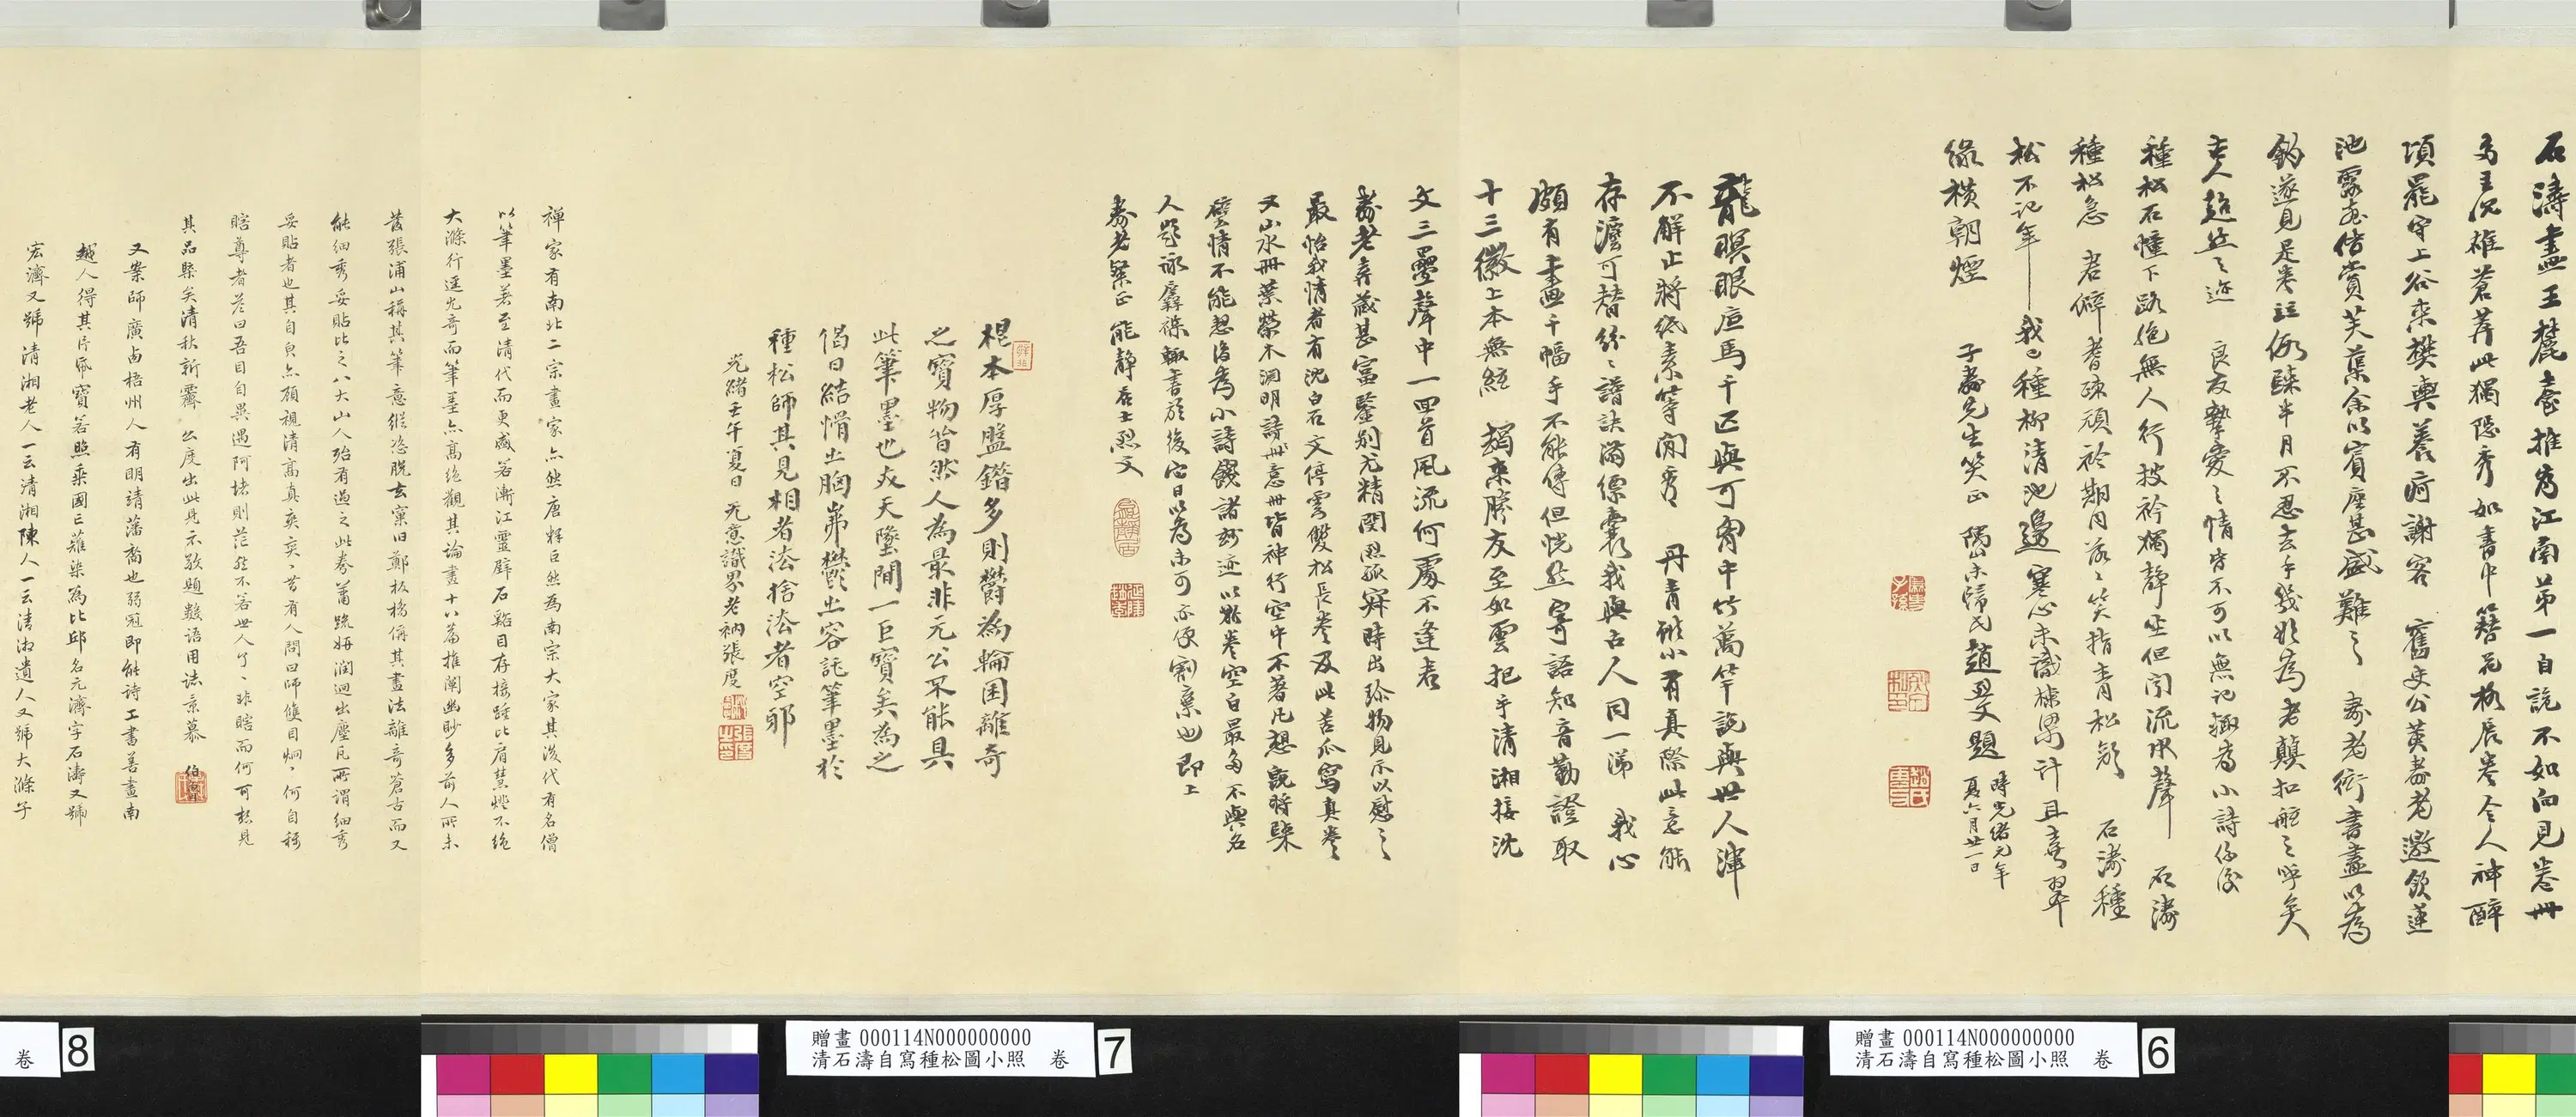 石濤畫王麓臺推為江南第一自說不如向見卷冊
多至沉雄蒼莽此獨隱秀如書中簪花格展卷令人神醉
頃罷守上谷來樊輿養疴謝客 舊史公黃壽老邀飲蓮
池露坐偕賞芙蕖余以賓座甚盛難之 壽老衒書畫以為
釣遂見是卷
古人
種松石幢下路絕無人行披衿獨聲坐但聞流泉聲 石濤
種松急 君僻耆疎頑於期日落落笑指青松顛 石濤種
松不記年 我已種柳清池邊寒心未識棟梁計且喜翠
綠橫朝煙 子壽先生笑正 陽山未歸氏趙烈文題 時光緒元年
夏六月廿一日
龍瞑眼底馬千匹與可胷中竹萬竿說與世人渾
不解止將紙素等閒看 丹青雖小有真際此意能
存澹可替紛紛譜訣滿縹囊我與古人同一涕 我心
頗有畫千幅手不能傳但恍然寄語知音勤證取
十三徽上本無絃 搊來勝友至如雲把手清湘接沈
文三疊聲中一回首風流何處不逢君
壽老弆藏甚富鑒別尤精閔照孤寐時出珍物見示以慰之
最怡我情者有沈白石文停雲雙松長卷及此苦瓜寫真卷
又山水冊葉榮木淵明詩冊意冊皆神行空中不著凡想
塵情不能想後為小詩餽諸妙迹以於卷空白最多不與名
人題詠羼襍輒書於後它日以為未可亦便割棄也即上
壽老粲正 能靜居士烈文
棍本厚盤錯多則鬱為輪囷離奇
之寶物皆然人為最非元公不能具
此筆墨也天墜間一巨寶矣為之
偈曰結愲出胸岪鬱出容託筆墨於
種松師其見相者法捨法者空邪
光緒壬午夏日 无意識界老衲張度
禪家有南北二宗畫家亦然唐釋巨然為南宗大家其後代有名僧
以筆墨著至清代而更盛若漸江靈壁石谿目存接踵比肩慧燈不絕
大滌行逕尤奇而筆墨亦高絕觀其論畫十八篇推闡幽眇多前人所未
舊張浦山稱其筆意縱恣脫去窠臼鄭板橋偁其畫法離奇蒼古而又
能細秀妥貼比之八大山人殆有過之此卷蕭疏妍潤迥出塵凡所謂細秀
妥貼者也其自負亦頗視清高真爽爽昔有人問曰師雙目炯炯何自稱
瞎尊者答曰吾目自異遇阿堵則茫然不若世人了了非瞎而何可想見
其品槩矣清秋新霽 公度出此見示敬題數語用誌景慕 伯
又案師廣西梧州人有明靖藩裔也弱冠即能詩工書善畫南
越人得其片昏寶若照乘國亡薙染為比邱名元濟字石濤又號
宏濟又號清湘老人一云清湘陳人一云清湘遺人又號大滌子
贈畫 000114N000000000
清石濤自寫種松圖小照 卷 6
贈畫 000114N000000000
清石濤自寫種松圖小照 卷 7
卷 8